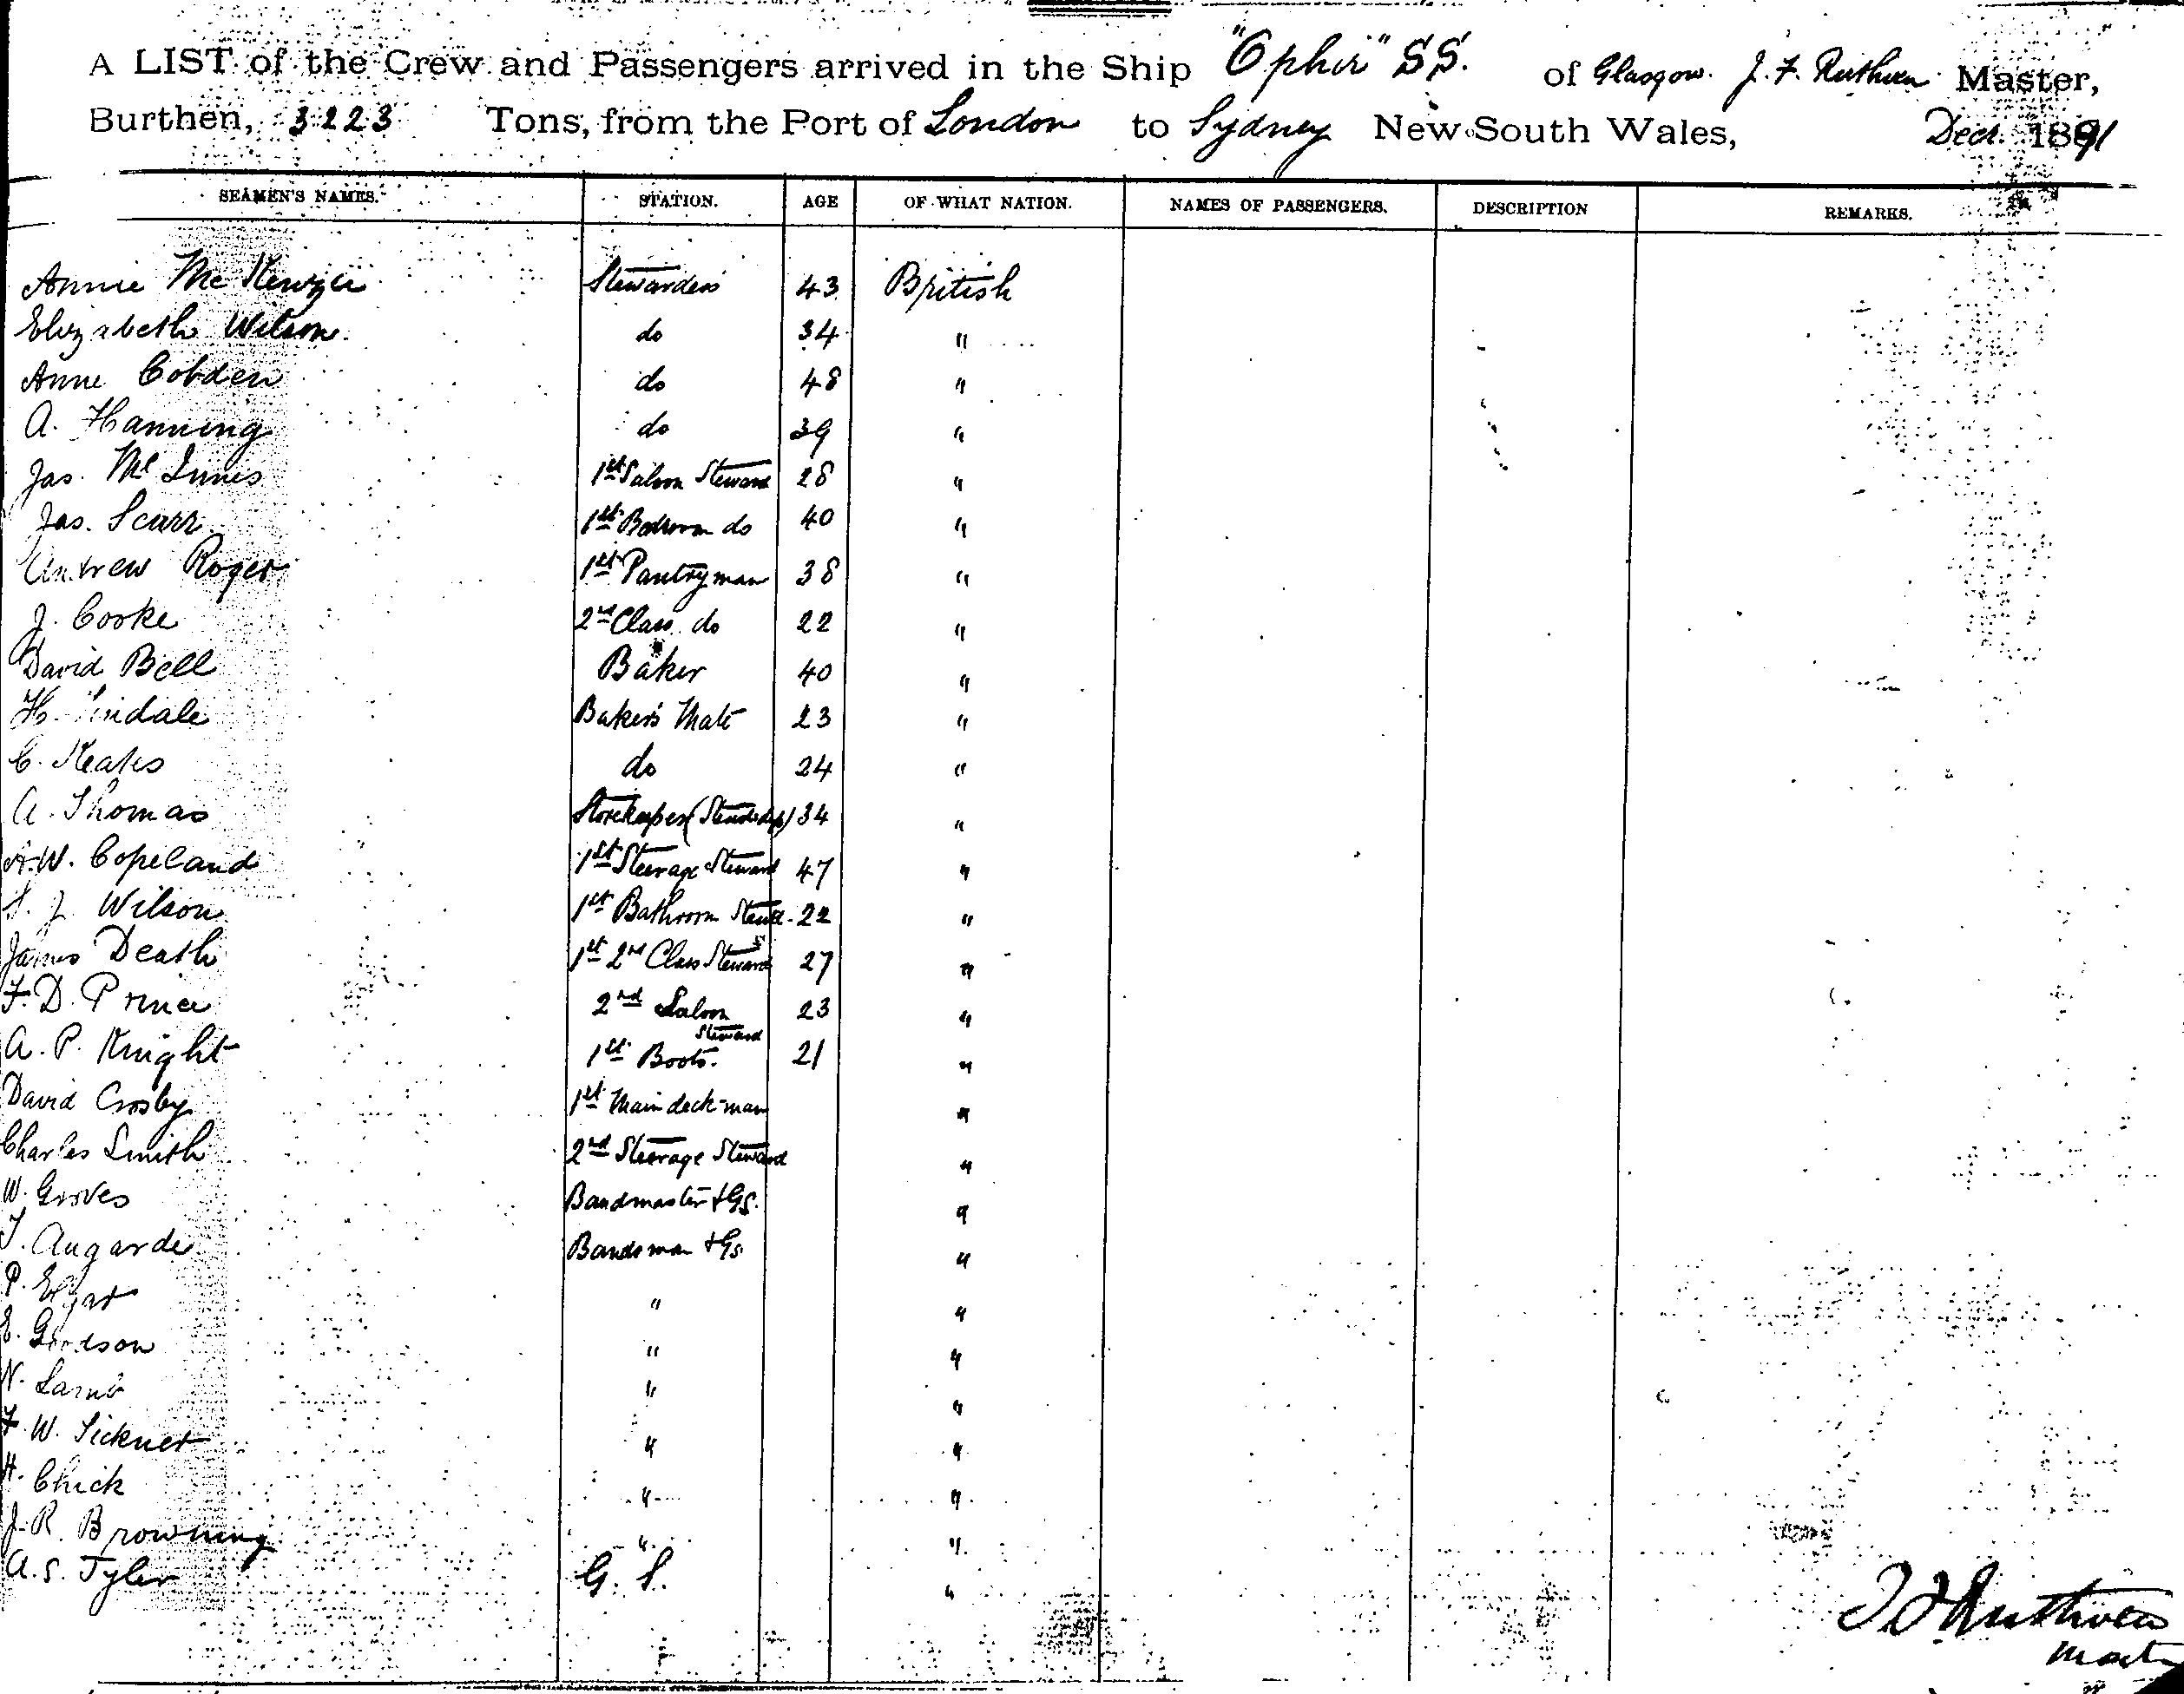 A LIST of the Crew and Passengers arrived in the Ship "Ophir" SS. of Glasgow. J. F. Ruthven Master,
Burthen, 3223 Tons, from the Port of London to Sydney New South Wales, Decr. 1891
SEAMEN'S NAMES. STATION. AGE OF WHAT NATION. NAMES OF PASSENGERS. DESCRIPTION REMARKS.
Annie McKenzie Stewardess 43 British
Elizabeth Wilson do 34 "
Anne Cobden do 48 "
A. Hanning do 39 "
Jas. McInnes 1st Saloon Steward 28 "
Jas. Scarr 1st Bedroom do 40 "
Andrew Roger 1st Pantryman 38 "
J. Cooke 2nd Class do 22 "
David Bell Baker 40 "
H. Baker's Mate 23 "
C. Keates do 24 "
A. Thomas Storekeeper (Stewds dep) 34 "
A. W. Copeland 1st Steerage Steward 47 "
J. Wilson 1st Bathroom Stewd. 22 "
James Death 1st 2nd Class Steward 27 "
F. D. Prince 2nd Saloon Steward 23 "
A. P. Knight 1st Boots. 21 "
David Crosby 1st Main deck-man "
Charles Smith 2nd Steerage Steward "
W. Groves Bandmaster & GS. "
T. Augarde Bandsman & GS "
P. Elgar " "
E. Goodson " "
N. Lamb " "
F. W. Sicknet " "
H. Chick " "
J. R. Browning " "
A. S. Tyler G. S. "
J F Ruthven
Master